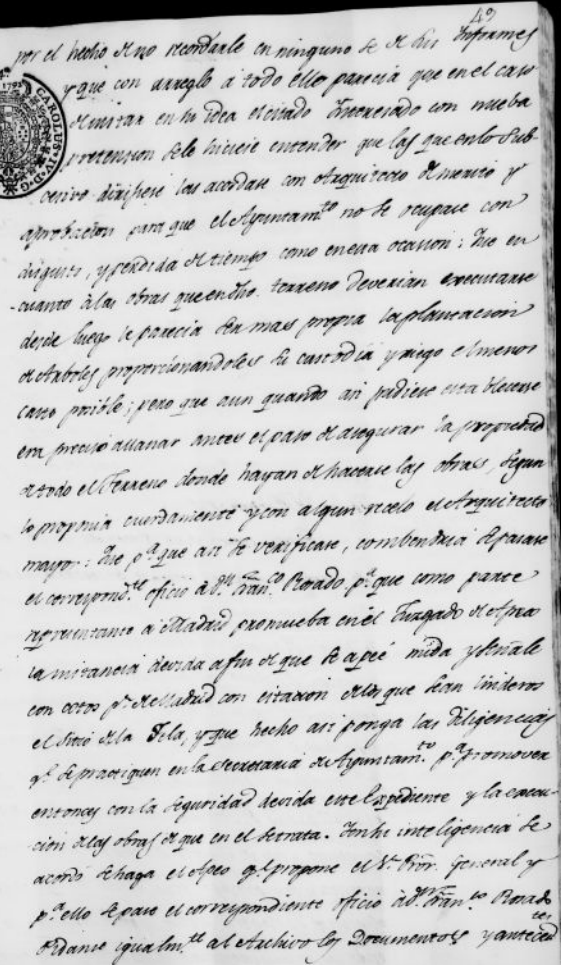 49
por el hecho de no recordarle en ninguno de sus Informes
y que con arreglo á todo ello parecia que en el caso
de instar en su idea el citado Interesado con nueba
pretension se le hiciese entender que las que en lo sub-
cesivo dirijiese las acordase con Arquitecto de merito y
aprobacion para que el Ayuntam.to no se ocupase con
disgusto, y perdida de tiempo como en esta ocasion: Que en
cuanto á las obras que en dho. terreno deverian executarse
desde luego le parecia sea mas propia la plantacion
de Arboles proporcionandoles su custodia y riego el menos
costo posible; pero que aun quando asi pudiese establecerse
era preciso allanar antes el paso de asegurar la propiedad
de todo el Terreno donde hayan de hacerse las obras, segun
lo proponia cuerdamente y con algun recelo el Arquitecto
mayor: Que p.a que asi se verificase, combendria se pasase
el correspond.te oficio á d.n Fran.co Rosado p.a que como parte
representante á Madrid promueba en el Juzgado de Apeo
la instancia devida a fin de que se apeé mida y señale
con cotos p.r de Madrid con citacion de los que sean linderos
el sitio de la Tela, y que hecho asi ponga las diligencias
q.e se practiquen en la Secretaria de Ayuntam.to p.a promover
entonces con la seguridad devida este Expediente y la execu-
cion de las obras de que en el se trata. Y en su inteligencia se
acordó se haga el Apeo q.e propone el S.r Pror. General y
p.a ello se pase el correspondiente oficio á d.n Fran.co Rosado
Pidanse igualm.te al Archivo los Documentos y anteced.tes
CAROLUS IV D G